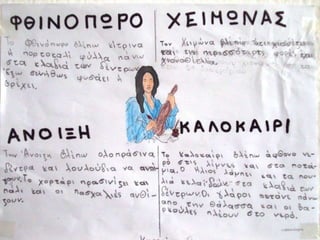 ΦΘΙΝΟΠΩΡΟ
Το φθινόπωρο βλέπω κίτρινα
πορτοκαλί φύλλα πάνω
στα κλαδιά των δέντρων.
Έξω συνήθως φυσάει ή
βρέχει.
ΧΕΙΜΩΝΑΣ
Τον Χειμώνα βλέπω
και τις περισσότερες φορές έχει
χιονοθύελλα.
ΑΝΟΙΞΗ
Την Άνοιξη βλέπω ολοπράσινα
δέντρα και λουλούδια να
Το χορτάρι πρασινίζει και
πάλι και οι πασχαλιές ανθί-
ζουν.
ΚΑΛΟΚΑΙΡΙ
Το καλοκαίρι βλέπω άφθονο νε-
ρό στις λίμνες και στα ποτά-
μια. Ο ήλιος λάμπει και τα που-
λιά κελαηδούν στα κλαδιά των
δέντρων. Οι γλάροι πετάνε πάνω
από την θάλασσα και οι βα-
ρκούλες πλέουν στο νερό.